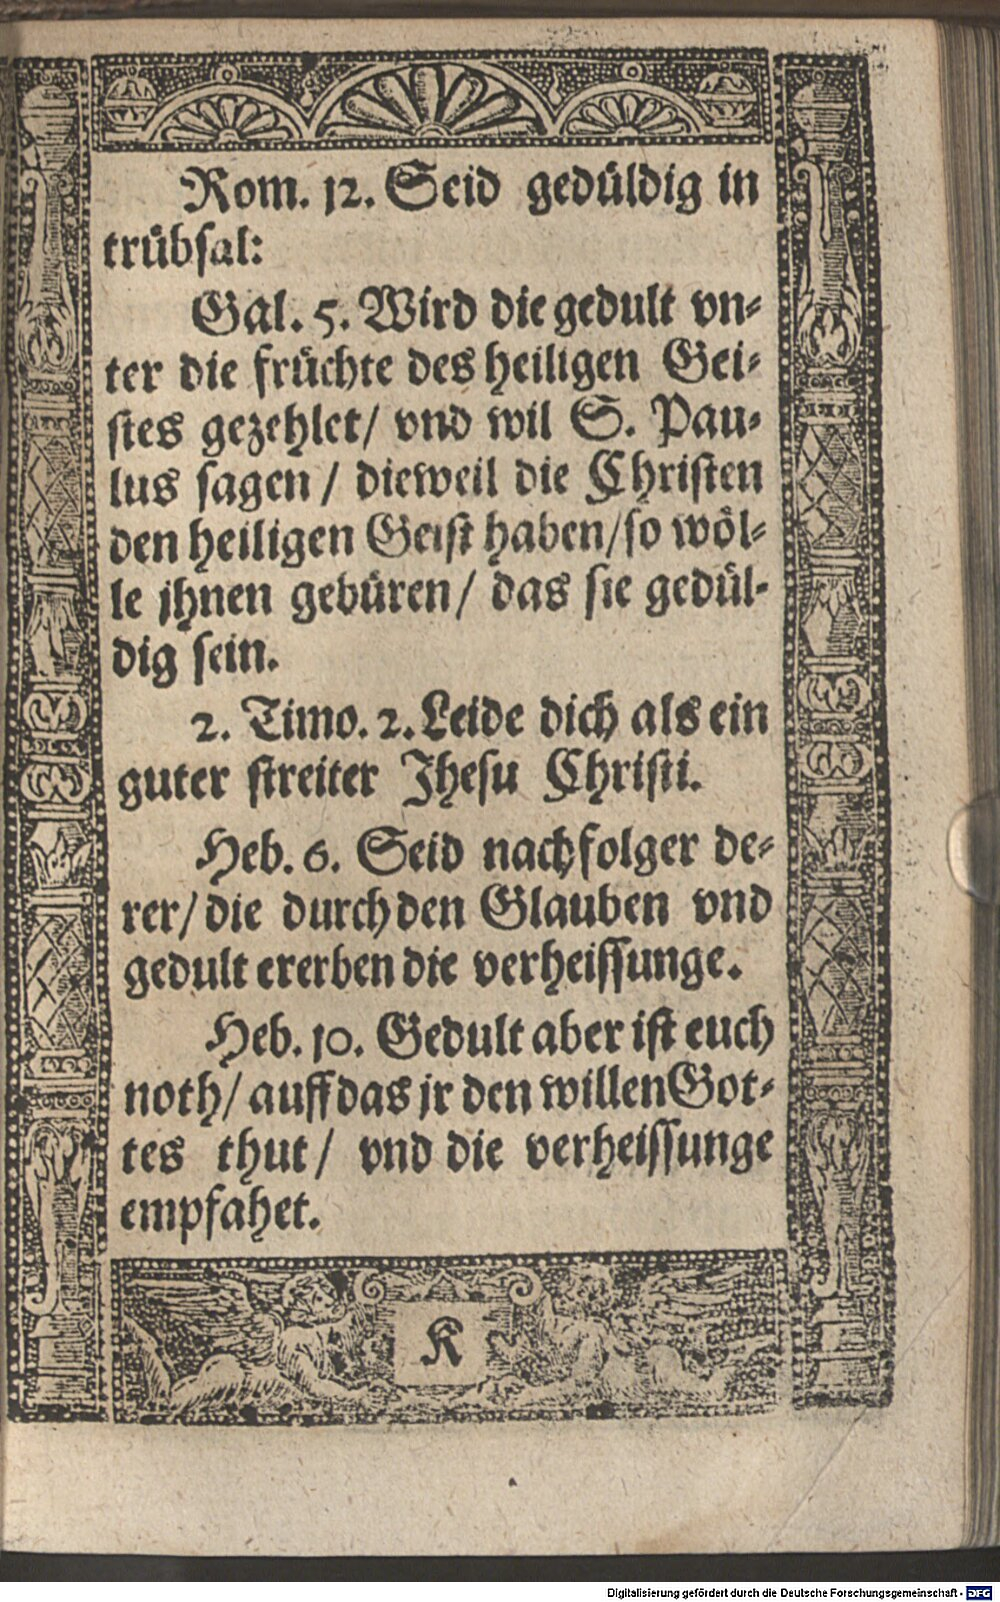 Rom. 12. Seid gedüldig in
trübsal:
Gal. 5. Wird die gedult vn-
ter die früchte des heiligen Gei-
stes gezehlet/ vnd wil S. Pau-
lus sagen/ dieweil die Christen
den heiligen Geist haben/ so wöl-
le jhnen gebüren/ das sie gedül-
dig sein.
2. Timo. 2. Leide dich als ein
guter streiter Jhesu Christi.
Heb. 6. Seid nachfolger de-
rer/ die durch den Glauben vnd
gedult ererben die verheissunge.
Heb. 10. Gedult aber ist euch
noth/ auff das jr den willen Got-
tes thut/ vnd die verheissunge
empfahet.
K
Digitalisierung gefördert durch die Deutsche Forschungsgemeinschaft - DFG